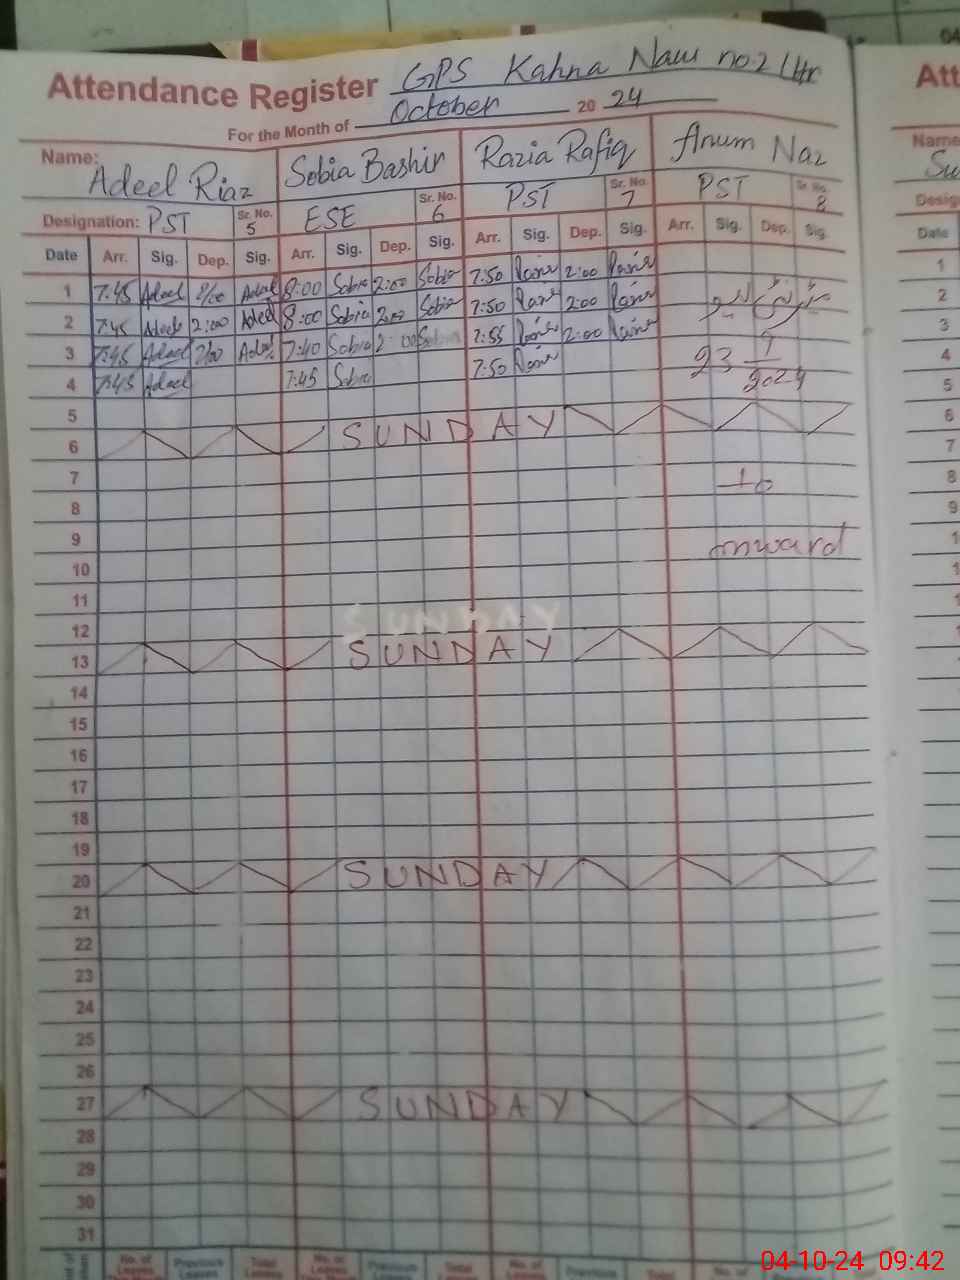 Attendance Register GPS Kahna Nau no 2 Lhr
For the Month of October 20 24
Name: Adeel Riaz Sobia Bashir Razia Rafiq Anum Naz
Designation: PST Sr. No. 5 ESE Sr. No. 6 PST Sr. No. 7 PST Sr. No. 8
Date Arr. Sig. Dep. Sig. Arr. Sig. Dep. Sig. Arr. Sig. Dep. Sig. Arr. Sig. Dep. Sig.
1 7:45 Adeel 2/00 Adeel 8:00 Sobia 2:00 Sobia 7:50 2:00
2 7:45 Adeel 2:00 Adeel 8:00 Sobia 2:00 Sobia 7:50 2:00
3 7:45 Adeel 2/00 Adeel 7:40 Sobia 2:00 Sobia 7:55 2:00 23 9
4 7:45 Adeel 7:45 Sobia 7:50 2024
5
6 SUNDAY
7 to
8
9 onward
10
11
SUNDAY
12
13 SUNDAY
14
15
16
17
18
19
20 SUNDAY
21
22
23
24
25
26
27 SUNDAY
28
29
30
31
No. of Leaves Previous Leaves Total Leaves No. of Leaves Previous Leaves Total Leaves No. of Leaves Previous Total No. of
Att
Name
Su
Desig
Date
1
2
3
4
5
6
7
8
9
04-10-24 09:42